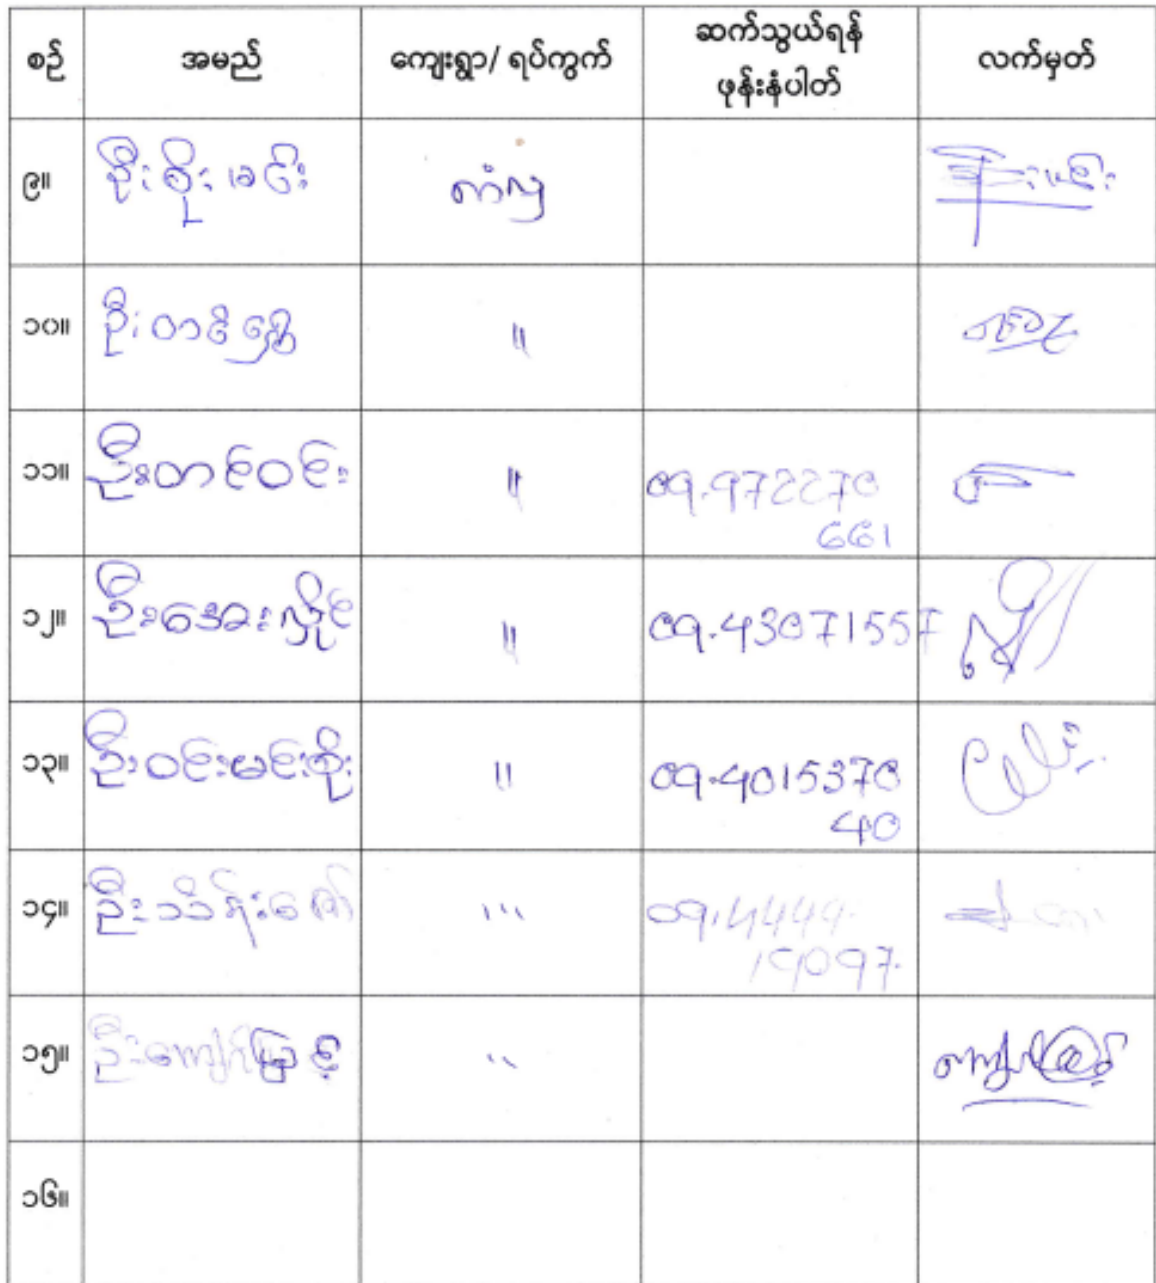 စဉ် အမည် ကျေးရွာ/ ရပ်ကွက် ဆက်သွယ်ရန် လက်မှတ်
ဖုန်းနံပါတ်
၉။ ဦးစိုးမင်း ကံလှ
၁၀။ ဦးတင်ရွှေ "
၁၁။ ဦးတင်ဝင်း " 09.972270
661
၁၂။ ဦးအေးလှိုင် " 09.43071557
၁၃။ ဦးဝင်းမင်းစိုး " 09.4015370
40
၁၄။ ဦးသိန်းဇော် " 09.4449
19097.
၁၅။ ဦးကျော်မြင့် " ကျော်မြင့်
၁၆။